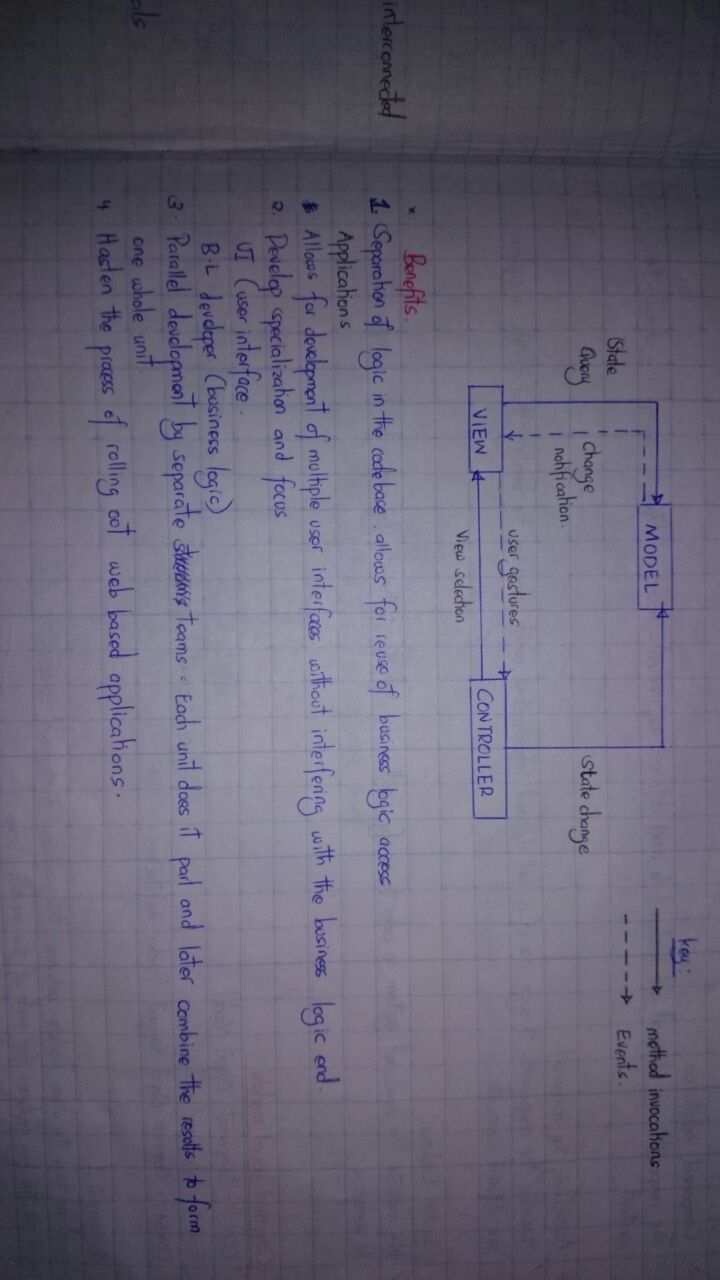 key:
MODEL
method invocations
Events.
State
Query
change
notification.
state change
user gestures
VIEW
CONTROLLER
View selection
Benefits.
interconnected
1. Separation of logic in the codebase. allows for reuse of business logic access.
Applications
Allows for development of multiple user interfaces without interfering with the business logic end.
2. Develop specialization and focus
UI (user interface.
B.L developer (business logic)
3. Parallel development by separate Teams. Each unit does it part and later combine the results to form
one whole unit.
als
4 Hasten the process of rolling out web based applications.